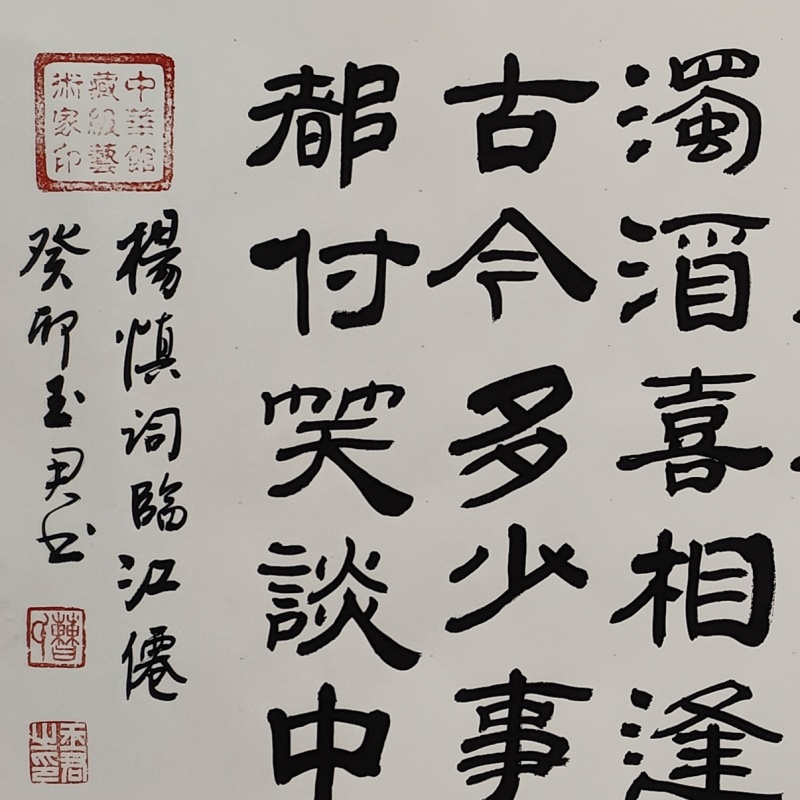 濁酒喜相逢
古今多少事
都付笑談中
楊慎詞臨江僊
中華館
藏級藝
術家印
癸卯玉君书
玉君
之印